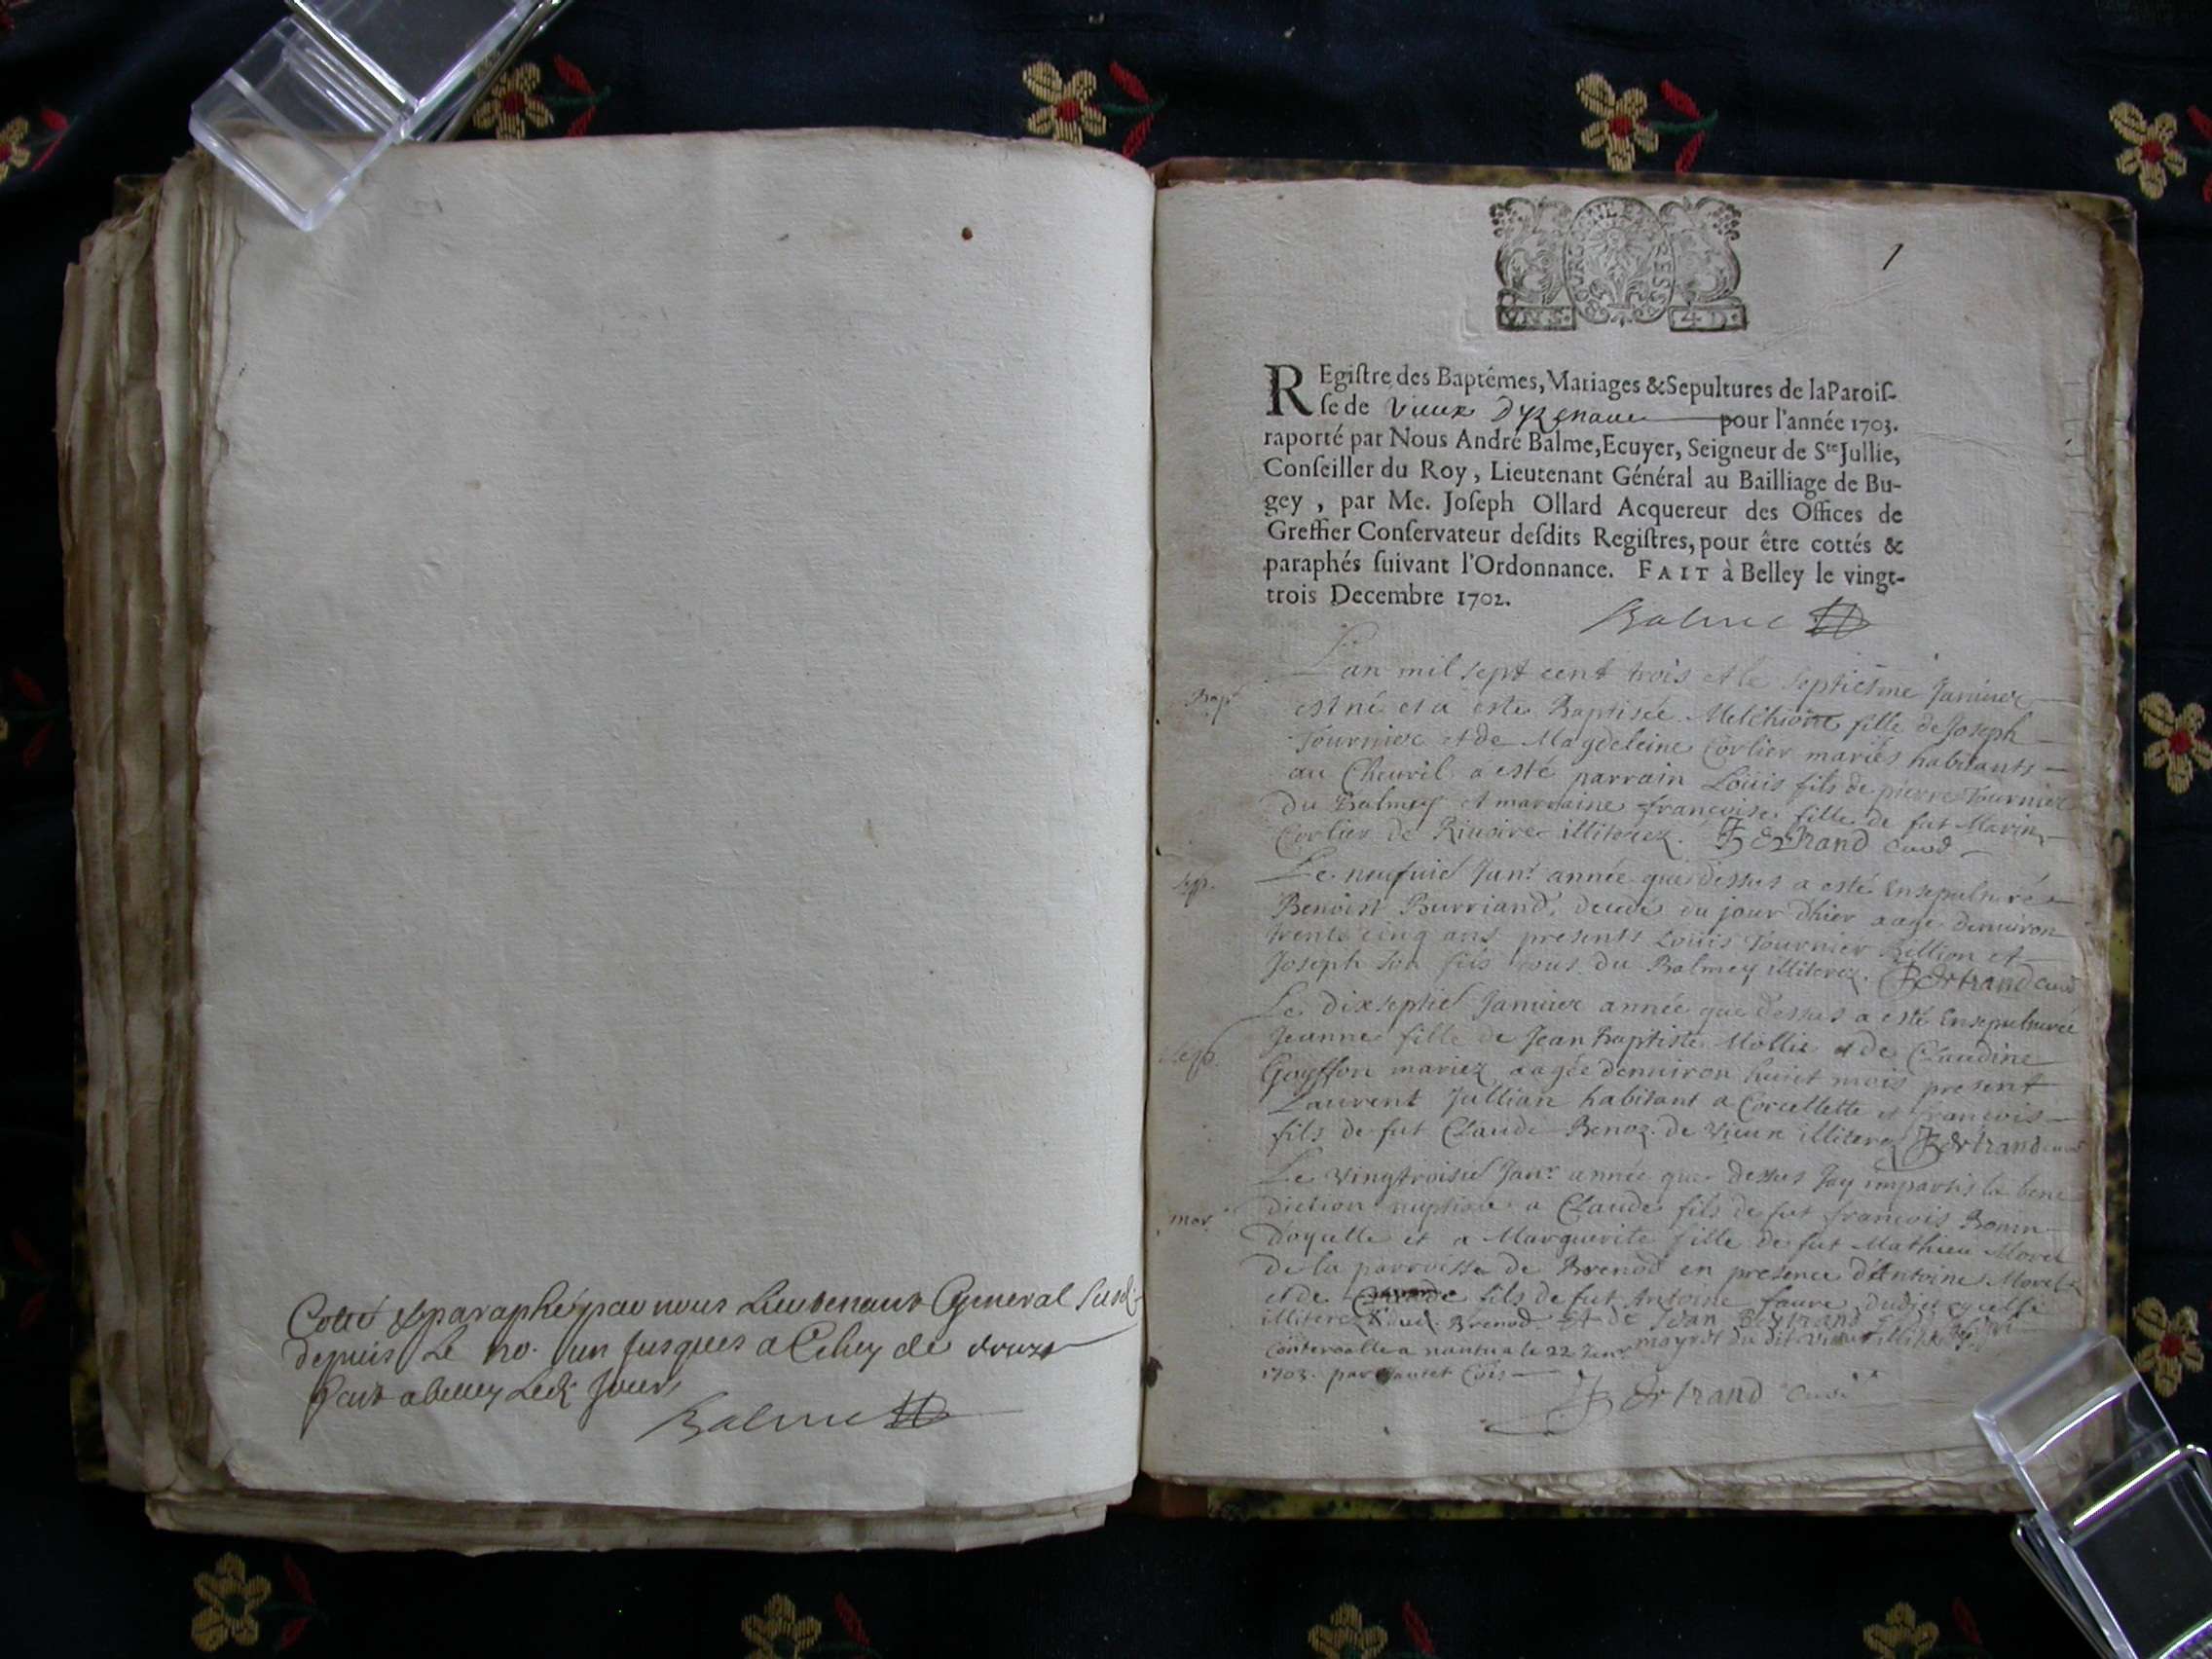 Cotté & paraphé par nous Lieutenant General susd.
depuis le no. un jusques a Celuy de douze
fait a belley Led. Jour
Balme
1
BOURGOGNE BRESSE
VNS. 4D.
REgiſtre des Baptêmes, Mariages & Sepultures de la Paroiſ-
ſe de Vieux Dyzenave pour l'année 1703.
raporté par Nous André Balme, Ecuyer, Seigneur de Ste Jullie,
Conſeiller du Roy, Lieutenant Général au Bailliage de Bu-
gey, par Me. Joſeph Ollard Acquereur des Offices de
Greffier Conſervateur deſdits Regiſtres, pour être cottés &
paraphés ſuivant l'Ordonnance. FAIT à Belley le vingt-
trois Decembre 1702.
Balme
L'an mil sept cent trois et le septiesme Janvier
Bapt
est né et a esté Baptisée Melchione fille de Joseph
Tournier et de Magdeleine Corlier mariés habitants
au Chevril a esté parrain Loüis fils de pierre Tournier
du Balmey et marraine françoise fille de fut Marin
Corlier de Rivoire illiterez. Bertrand curé
Le neufvie Janr année que dessus a esté Ensepulturé
Sep.
Benoist Burriand decedé du jour d'hier aagé denviron
trente cinq ans presents Loüis Tournier Billion et
Joseph son fils tous du Balmey illiterez. Bertrand curé
Le dixseptie Janvier année que dessus a esté Ensepulturée
Jeanne fille de Jean Baptiste Mollie et de Claudine
Sep.
Guyffon mariez aagée denviron huict mois present
Laurent Jullian habitant a Corcellette et francois
fils de fut Claude Benoz de Vieux illiterez Bertrand curé
Le vingtroisie Janr année que dessus Jay impartis la bene
diction nuptiale a Claude fils de fut francois Bonin
mar.
d'oyselle et a Marguerite fille de fut Mathieu Morel
de la parroisse de Brenod en presence d'Antoine Morel
et de Claude fils de fut Antoine faure dudit
illiterez dud. Brenod. Et de Jean Beytrand
Controolle a nantua le 22 Janr mayrot du dit Vieux
1703. par
Bertrand Curé